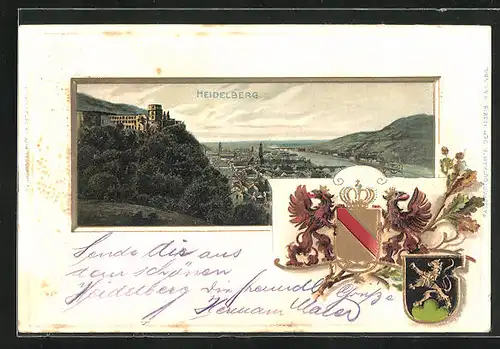 HEIDELBERG
Sende dir aus
dem schönen
Heidelberg die freundl. Grüße
Hermann